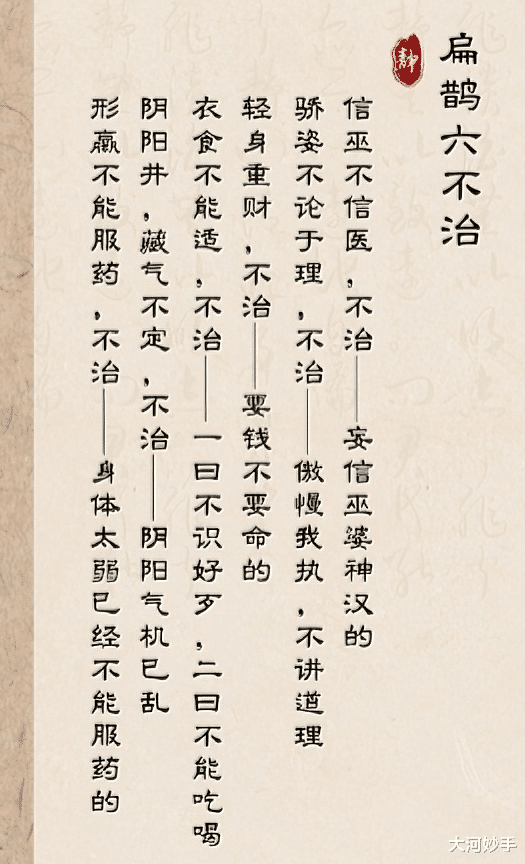 扁鹊六不治
信巫不信医，不治——妄信巫婆神汉的
骄姿不论于理，不治——傲慢我执，不讲道理
轻身重财，不治——要钱不要命的
衣食不能适，不治——一曰不识好歹，二曰不能吃喝
阴阳井，藏气不定，不治——阴阳气机已乱
形羸不能服药，不治——身体太弱已经不能服药的
大河妙手